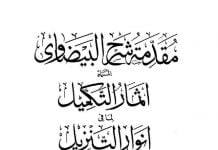 مقدمة شرح البيضاوي
المسماة
اثمار التكميل
لما في
انوار التنزيل